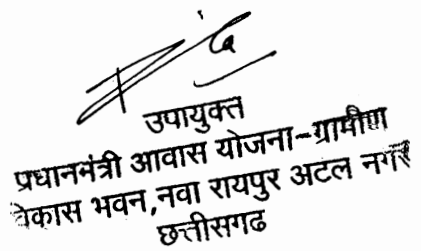 उपायुक्त
प्रधानमंत्री आवास योजना-ग्रामीण
विकास भवन,नवा रायपुर अटल नगर
छत्तीसगढ